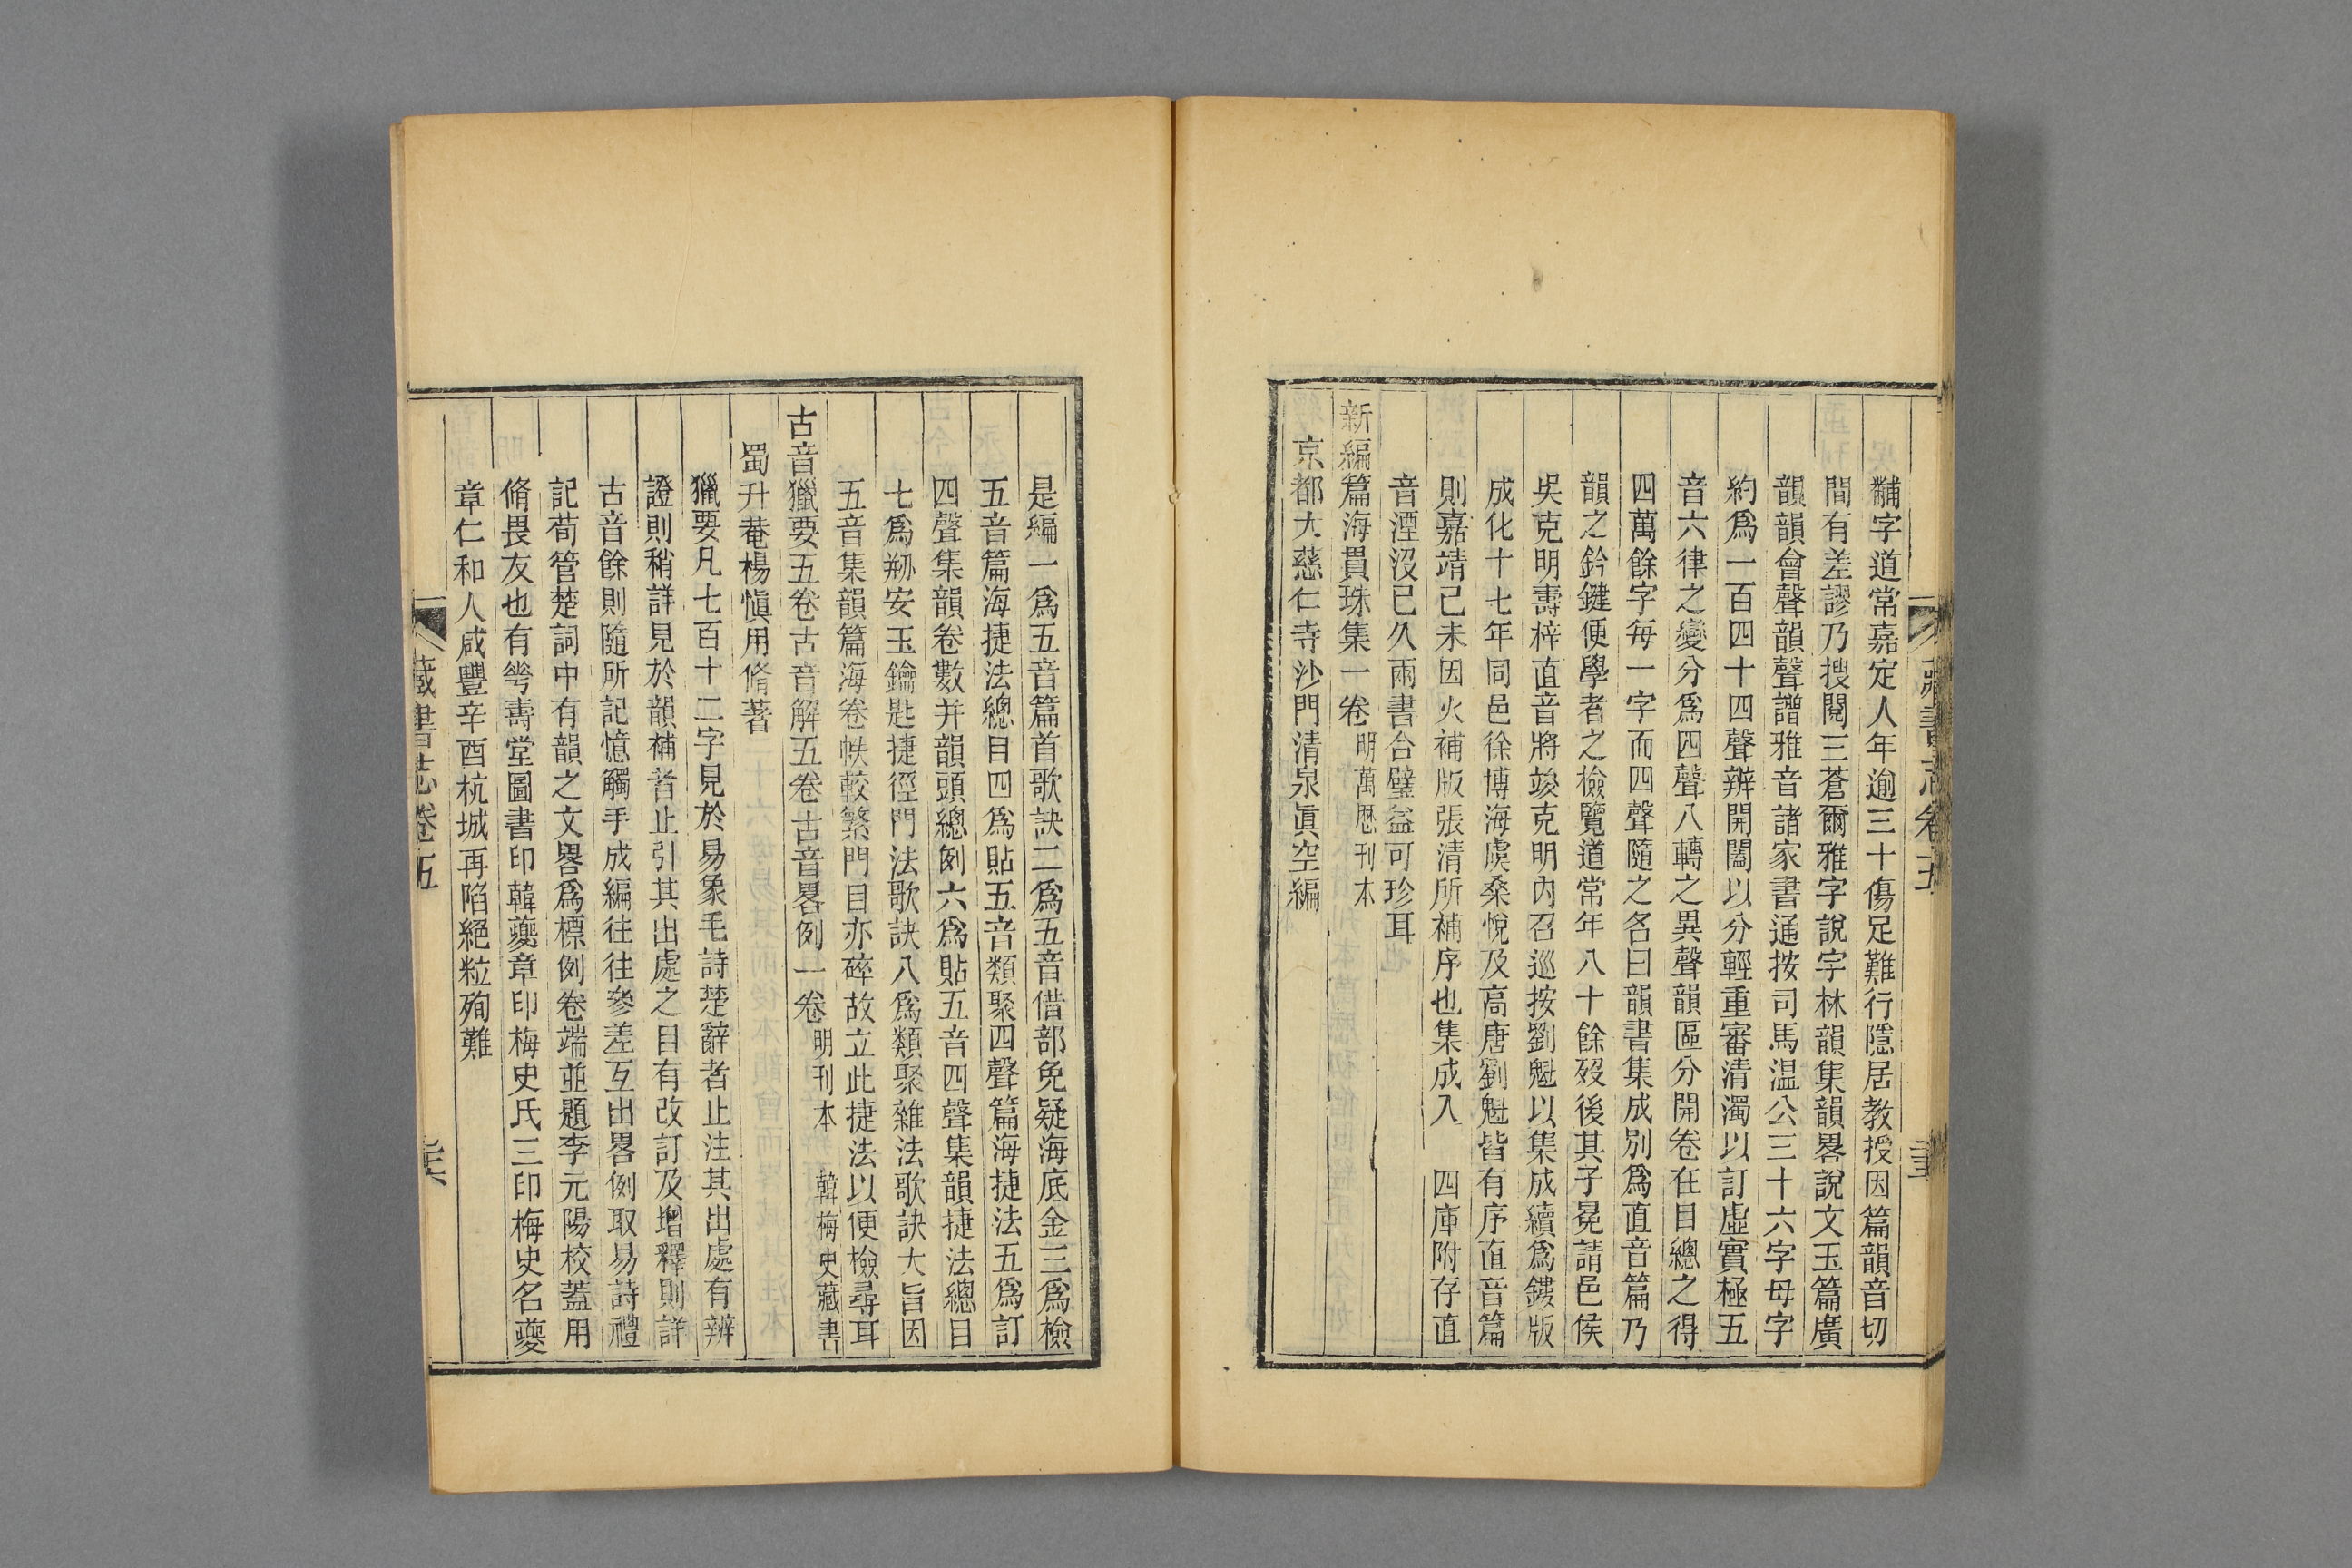 藏書志卷五
黼字道常嘉定人年逾三十傷足難行隱居教授因篇韻音切
間有差謬乃搜閱三蒼爾雅字說字林韻集韻畧說文玉篇廣
韻韻會聲韻聲譜雅音諸家書通按司馬温公三十六字母字
約爲一百四十四聲辨開闔以分輕重審清濁以訂虛實極五
音六律之變分爲四聲八轉之異聲韻區分開卷在目總之得
四萬餘字每一字而四聲隨之名曰韻書集成別爲直音篇乃
韻之鈐鍵便學者之檢覽道常年八十餘歿後其子冕請邑侯
吳克明壽梓直音將竣克明內召巡按劉魁以集成續爲鏤版
成化十七年同邑徐博海虞桑悅及高唐劉魁皆有序直音篇
則嘉靖己未因火補版張清所補序也集成入 四庫附存直
音湮沒已久兩書合璧益可珍耳
新編篇海貫珠集一卷 明萬厯刊本
京都大慈仁寺沙門清泉眞空編
是編一爲五音篇首歌訣二爲五音借部免疑海底金三爲檢
五音篇海捷法總目四爲貼五音類聚四聲篇海捷法五爲訂
四聲集韻卷數并韻頭總例六爲貼五音四聲集韻捷法總目
七爲刱安玉鑰匙捷徑門法歌訣八爲類聚雜法歌訣大旨因
五音集韻篇海卷帙較繁門目亦碎故立此捷法以便檢尋耳
古音獵要五卷古音解五卷古音畧例一卷 明刊本 韓梅史藏書
蜀升菴楊愼用脩著
獵要凡七百十二字見於易象毛詩楚辭者止注其出處有辨
證則稍詳見於韻補者止引其出處之目有改訂及增釋則詳
古音餘則隨所記憶觸手成編往往參差互出畧例取易詩禮
記荀管楚詞中有韻之文畧爲標例卷端並題李元陽校蓋用
脩畏友也有䒷壽堂圖書印韓䕫章印梅史氏三印梅史名䕫
章仁和人咸豐辛酉杭城再陷絕粒殉難
藏書志卷五